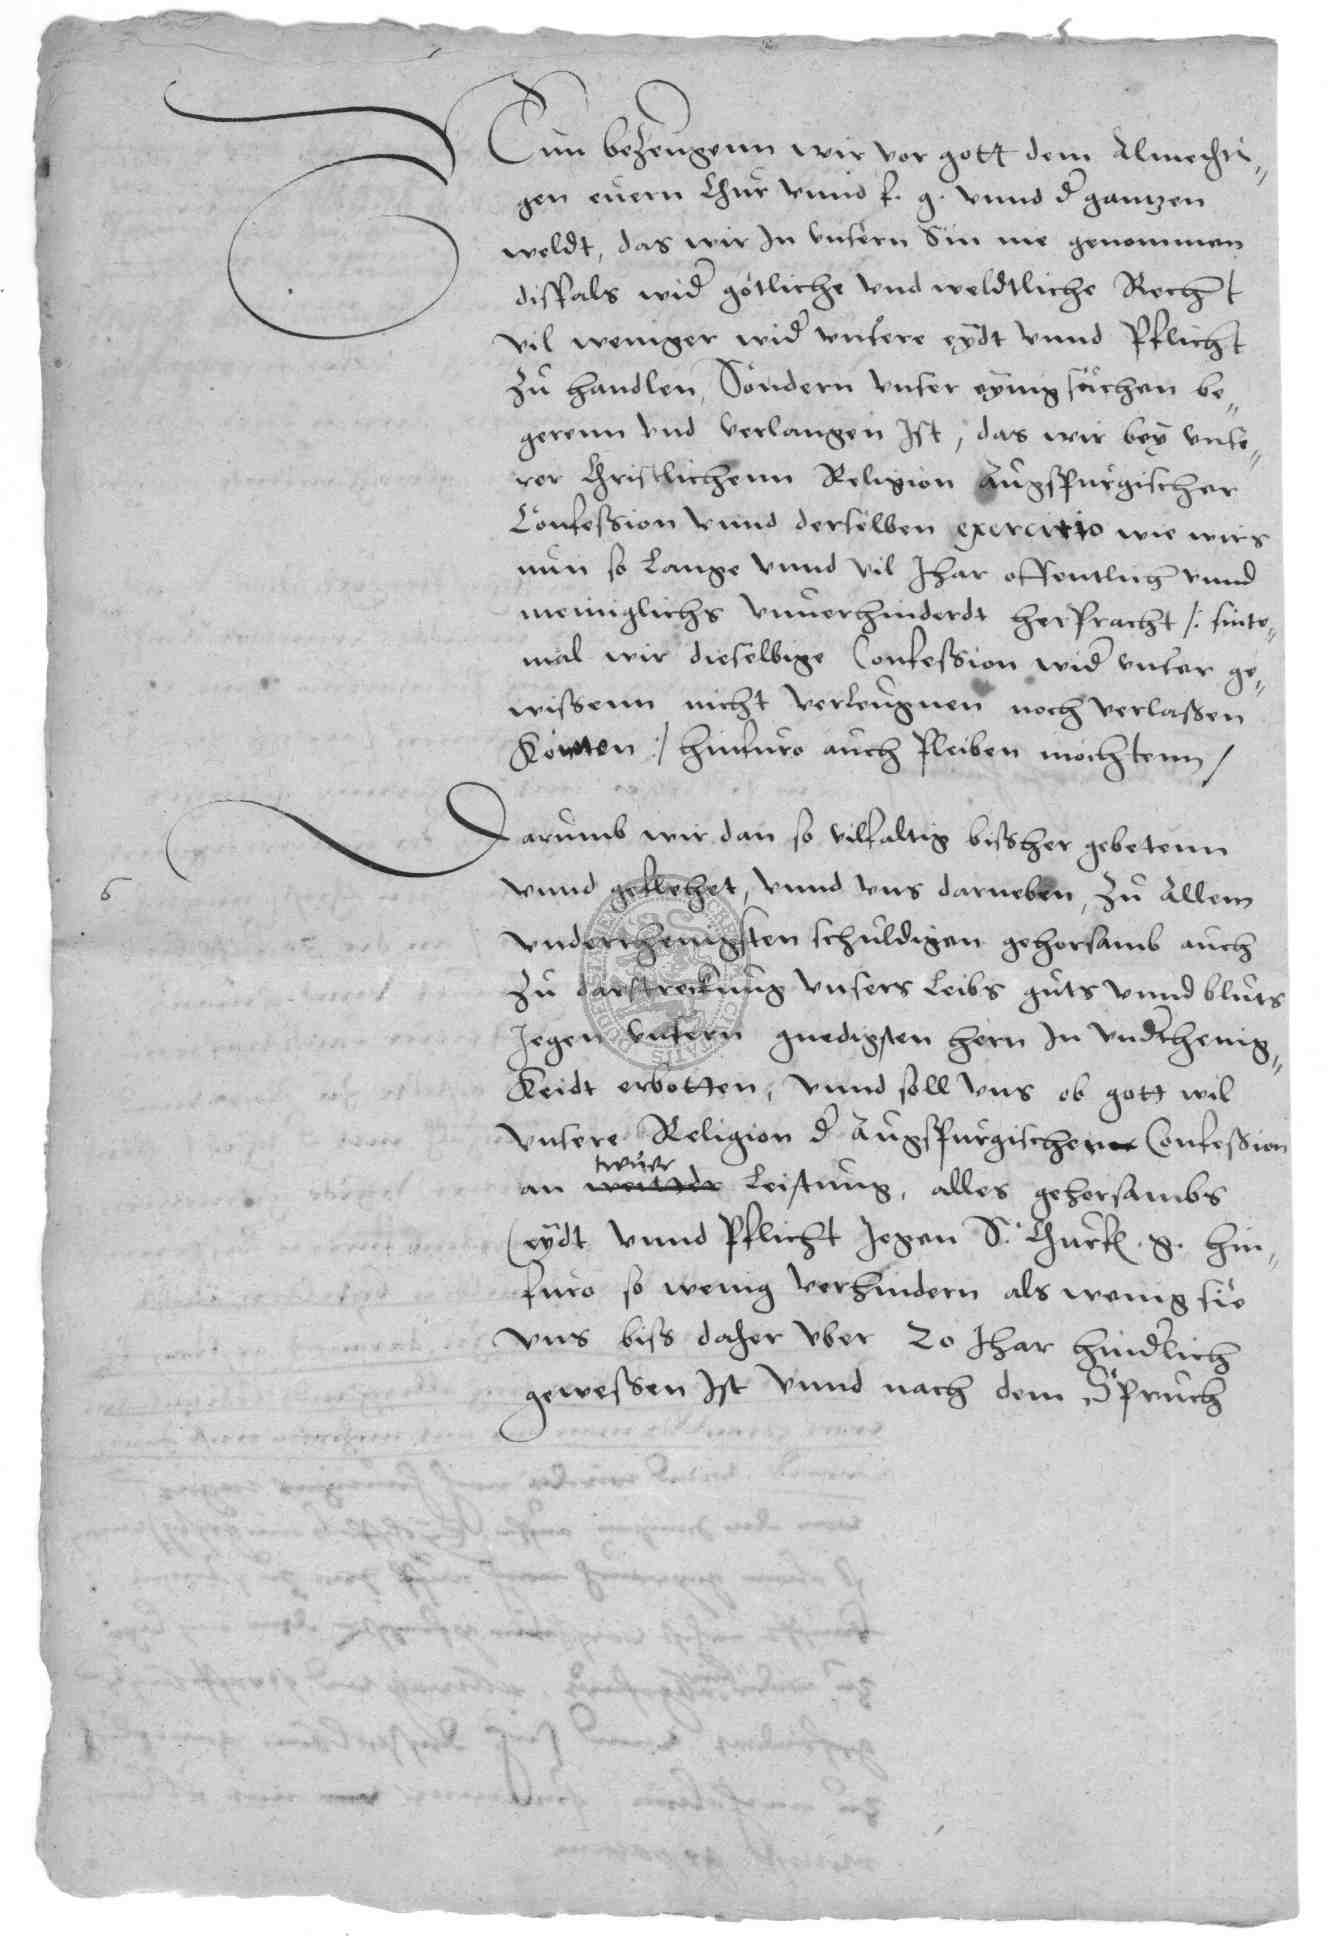 Nun bezeugenn wir vor gott dem Almechti-
gen euern Chur vnnd f. g. vnnd d' gantzen
weldt, das wir In vnsern Sin nie genommen
dissfals wid' götliche vnd weldtliche Recht
vil weniger wid' vnsere eydt vnnd Pflicht
zu handlen, Sondern vnser eynig suchen be-
gerenn vnd verlangen Ist, das wir bey vnse-
rer Christlichenn Religion Augspurgischer
Confession vnnd derselben exercitio wie wirs
nun so Lange vnnd vil Jhar offentlich vnnd
meniglichs vnuerhinderdt herpracht /: sinte-
mal wir dieselbige Confession wid' vnser ge-
wissenn nicht verleugnen noch verlassen
konten :/ hinfuro auch pleiben mochtenn /
Darumb wir dan so vilfaltig bissher gebetenn
6
vnnd geflehet, vnnd vns darneben, zu Allem
vnderthenigsten schuldigen gehorsamb auch
zu darstreckung vnsers Leibs guts vnnd bluts
Jegen vnsern gnedigsten hern In vnd'thenig-
keidt erbotten, vnnd soll vns ob gott wil
vnsere Religion d' Augspurgischen Confession
truer
an Leistung, alles gehorsambs
eydt vnnd Pflicht Jegen S. Churf. g. hin-
furo so wenig verhindern als wenig sie
vns biss daher vber 20 Jhar hind'lich
gewessen Ist vnnd nach dem Spruch